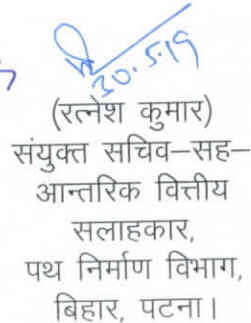 30.5.19
(रत्नेश कुमार)
संयुक्त सचिव–सह–
आन्तरिक वित्तीय
सलाहकार,
पथ निर्माण विभाग,
बिहार, पटना।